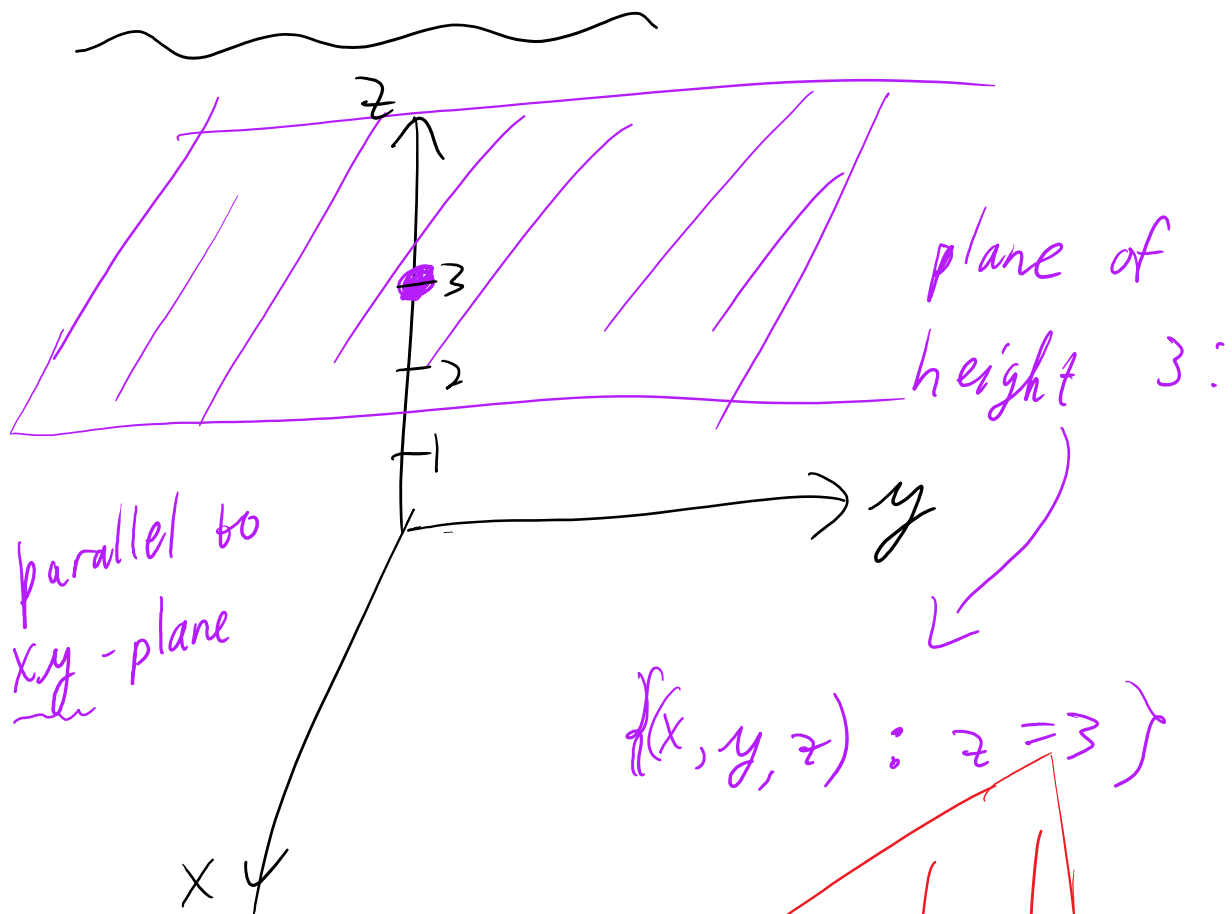 z
3
2
1
y
x
plane of
height 3:
parallel to
xy-plane
{(x, y, z) : z = 3}